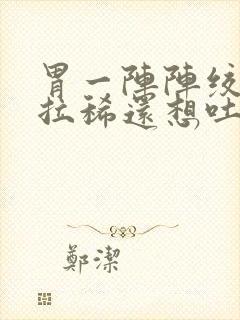 胃一陣陣絞
拉稀還想吐
鄭潔